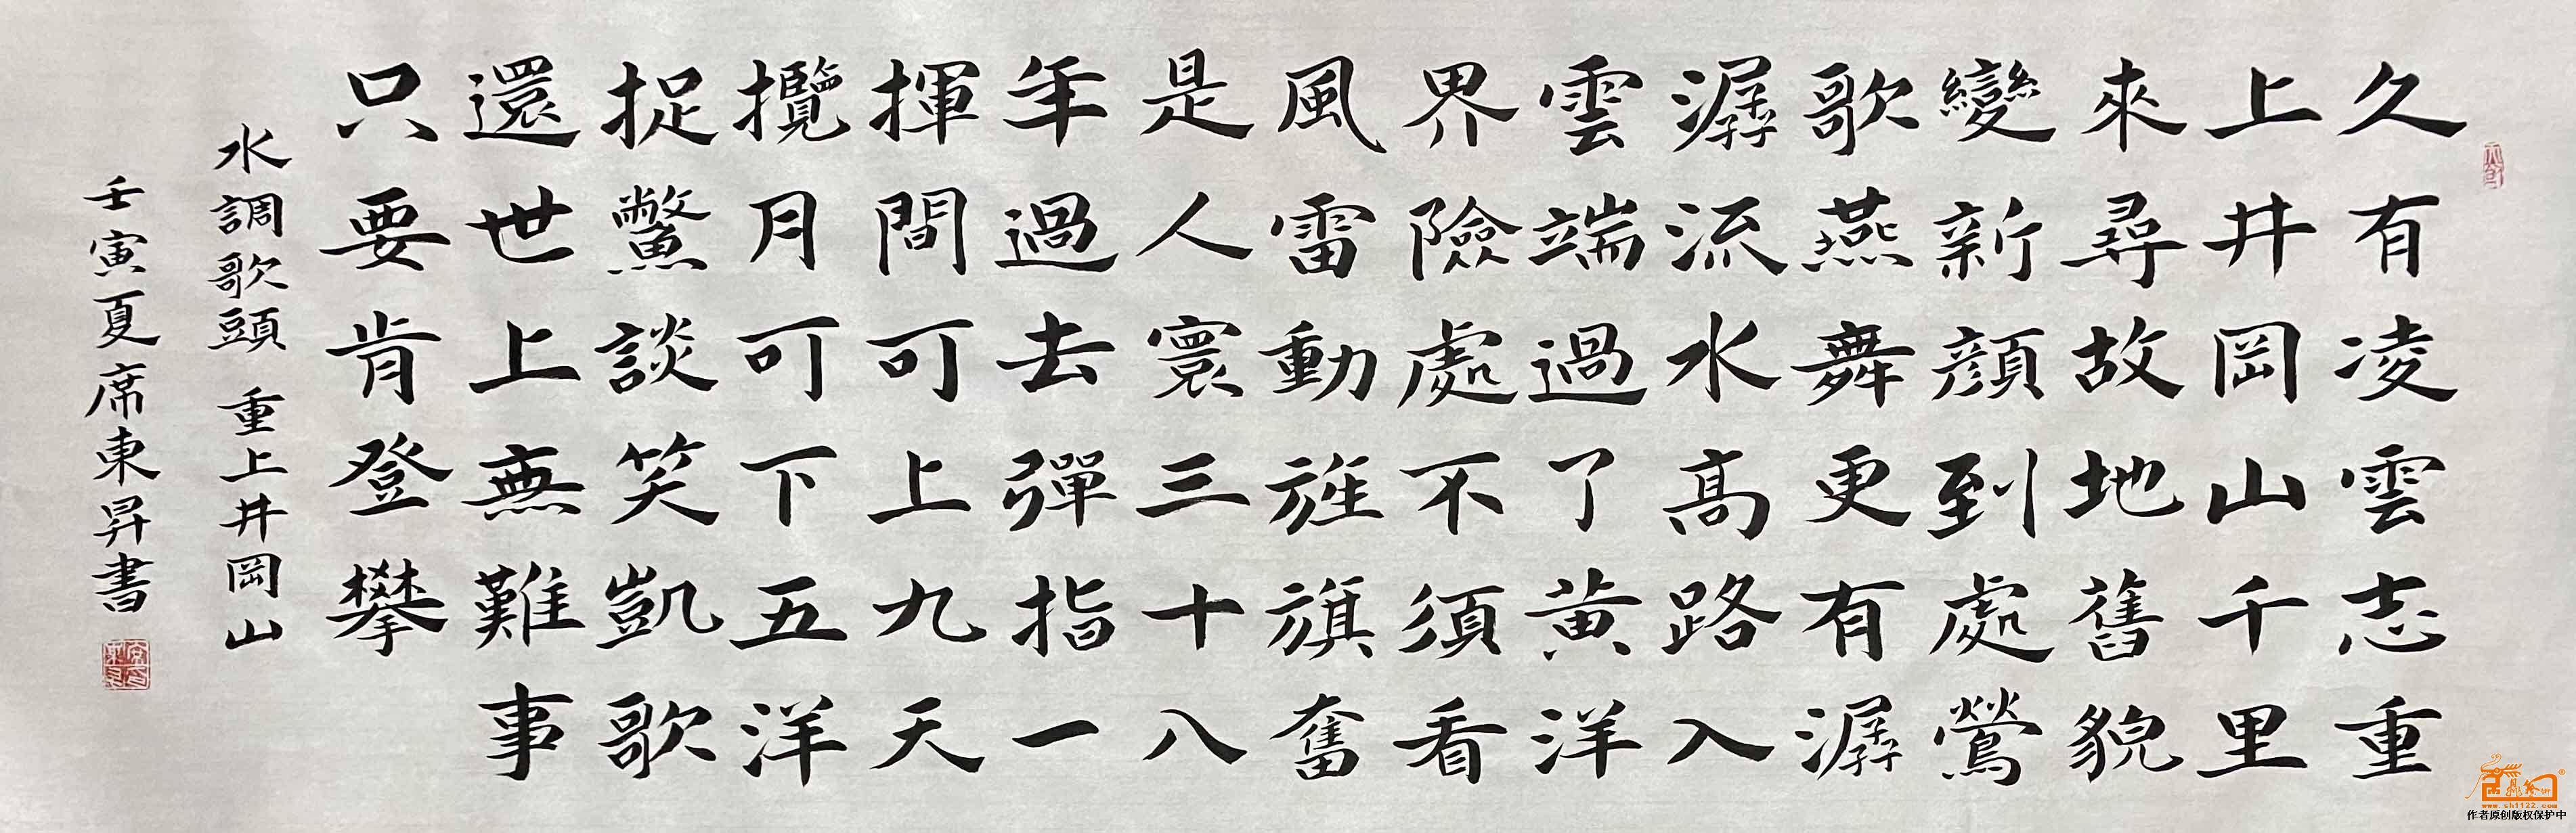 久有凌雲志重
上井岡山千里
來尋故地舊貌
變新顔到處鶯
歌燕舞更有潺
潺流水高路入
雲端過了黄洋
界險處不須看
風雷動旌旗奮
是人寰三十八
年過去彈指一
揮間可上九天
攬月可下五洋
捉鱉談笑凱歌
還世上無難事
只要肯登攀
水調歌頭 重上井岡山
壬寅夏席東昇書
www.sh1122.com
作者原创版权保护中